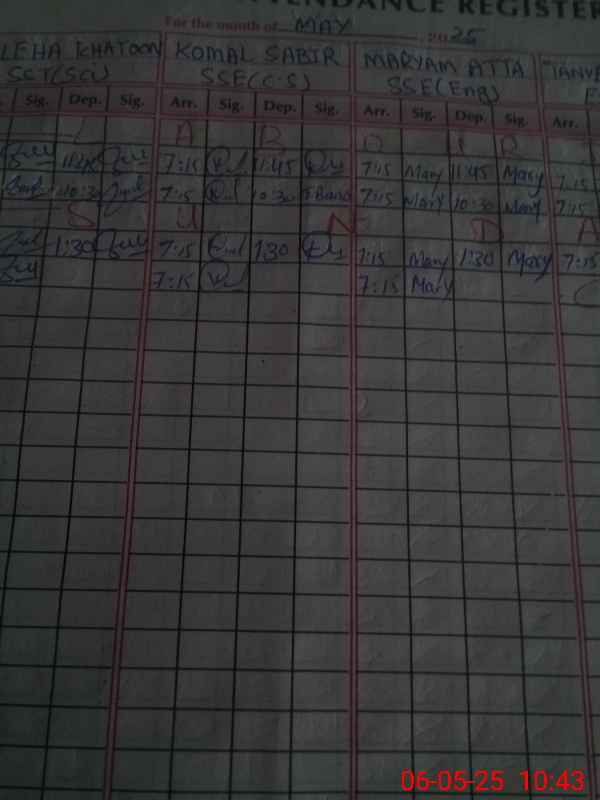 TENDANCE REGISTER
For the month of MAY 2025
LEHA KHATOON KOMAL SABIR MARYAM ATTA TANVE
SST(SCI) SSE(C.S) SSE(Eng)
Sig. Dep. Sig. Arr. Sig. Dep. Sig. Arr. Sig. Dep. Sig. Arr.
L A B O U R
11:45 7:15 11:45 7:15 Mary 11:45 Mary 7:15
10:30 7:15 10:30 7:15 Mary 10:30 Mary 7:15
S U N D A
1:30 7:15 1:30 7:15 Mary 1:30 Mary 7:15
7:15 7:15 Mary
06-05-25 10:43